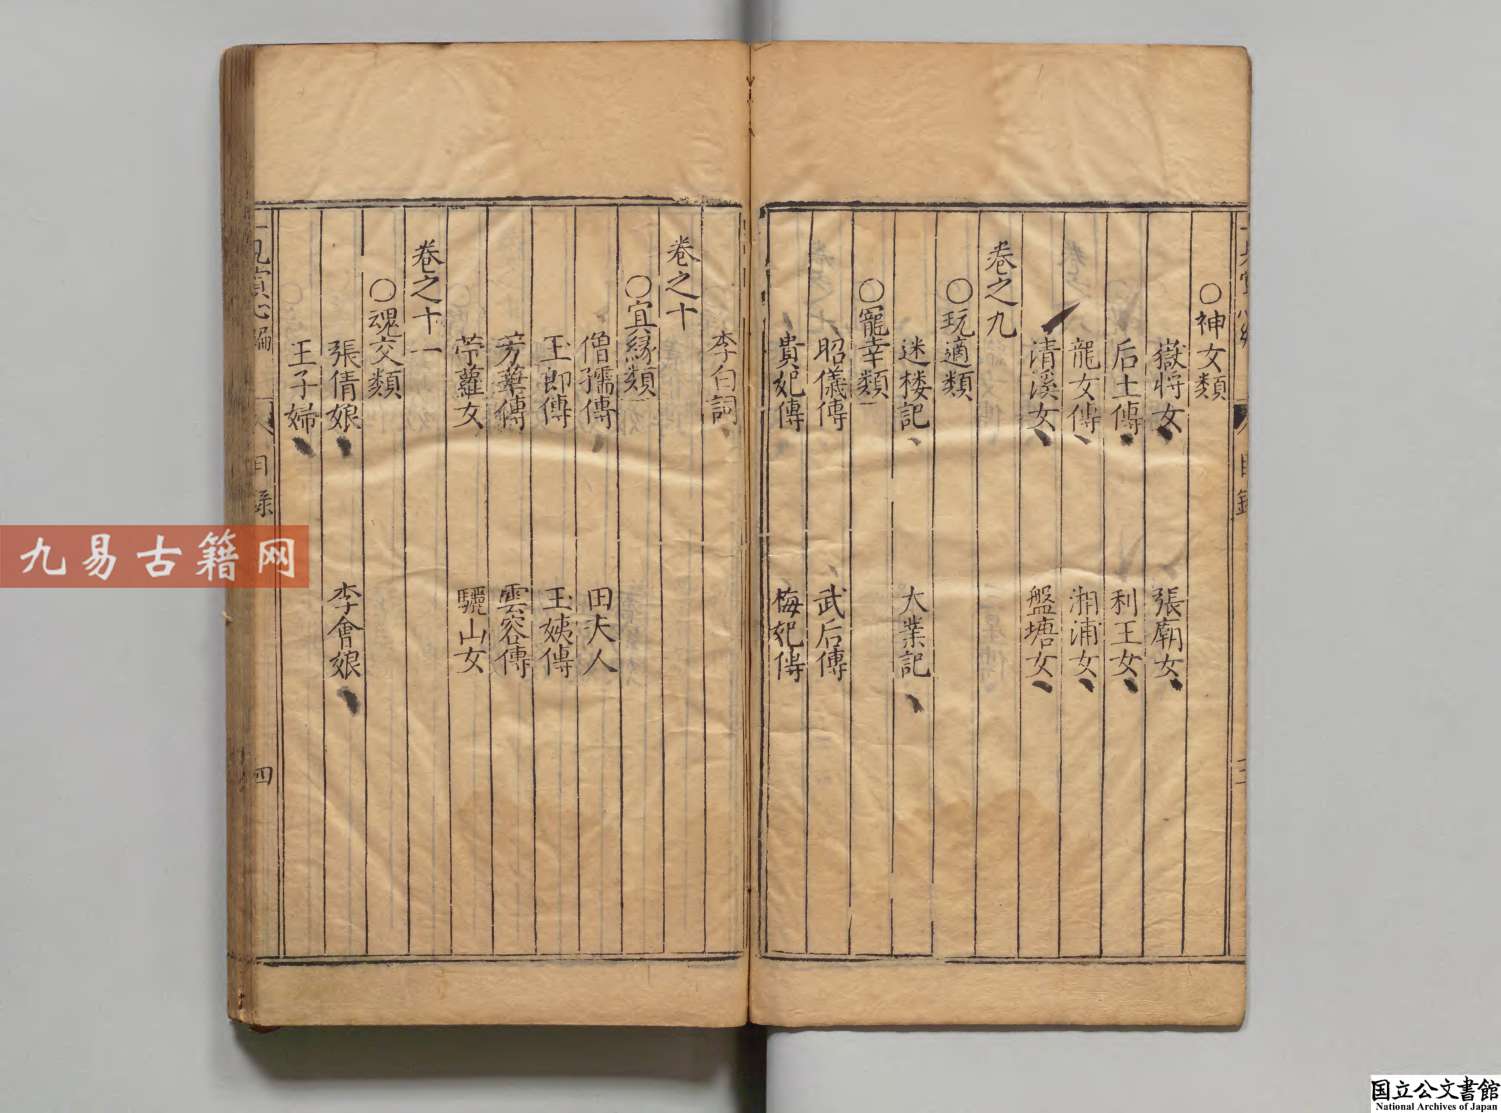 ○神女類
嶽將女 張廟女
后土傳 利王女
龍女傳 湘浦女
清溪女 盤塘女
卷之九
○玩適類
迷楼記 大業記
○寵幸類
昭儀傳 武后傳
貴妃傳 梅妃傳
李白詞
卷之十
○冥緣類
僧孺傳 田夫人
王郎傳 玉姨傳
芳華傳 雲容傳
苧蘿女 驪山女
卷之十一
○魂交類
張倩娘 李會娘
王子婦
目錄
四
九易古籍网
国立公文書館
National Archives of Japan